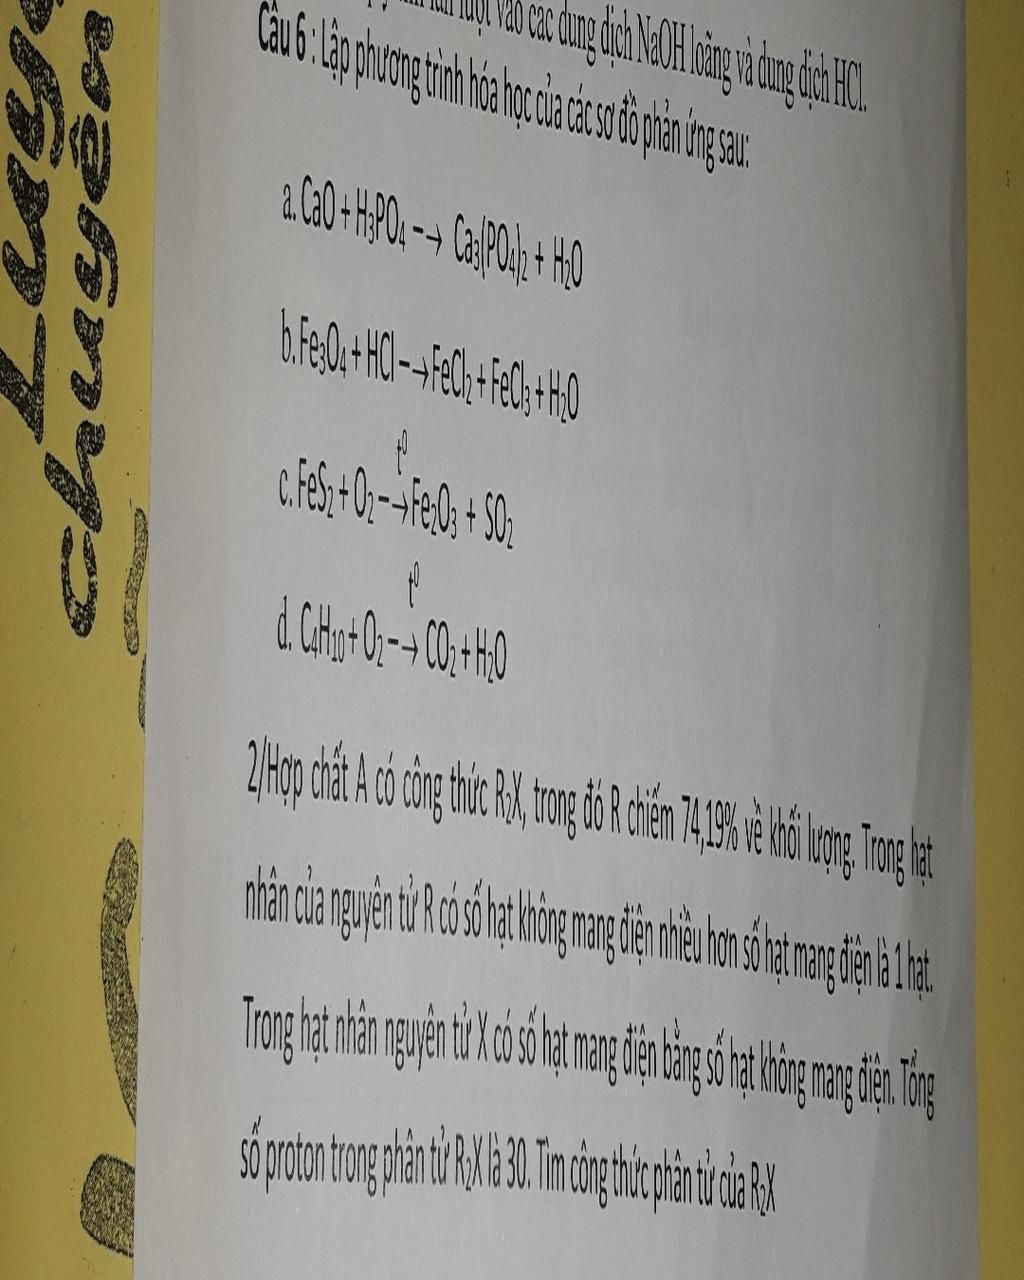 lượt vào các dung dịch NaOH loãng và dung dịch HCl.
Câu 6 : Lập phương trình hóa học của các sơ đồ phản ứng sau:
a. CaO + H₃PO₄ --→ Ca₃(PO₄)₂ + H₂O
b. Fe₃O₄ + HCl --→ FeCl₂ + FeCl₃ + H₂O
t⁰
c. FeS₂ + O₂ --→ Fe₂O₃ + SO₂
t⁰
d. C₄H₁₀ + O₂ --→ CO₂ + H₂O
2/Hợp chất A có công thức R₂X, trong đó R chiếm 74,19% về khối lượng. Trong hạt
nhân của nguyên tử R có số hạt không mang điện nhiều hơn số hạt mang điện là 1 hạt.
Trong hạt nhân nguyên tử X có số hạt mang điện bằng số hạt không mang điện. Tổng
số proton trong phân tử R₂X là 30. Tìm công thức phân tử của R₂X
chuyên